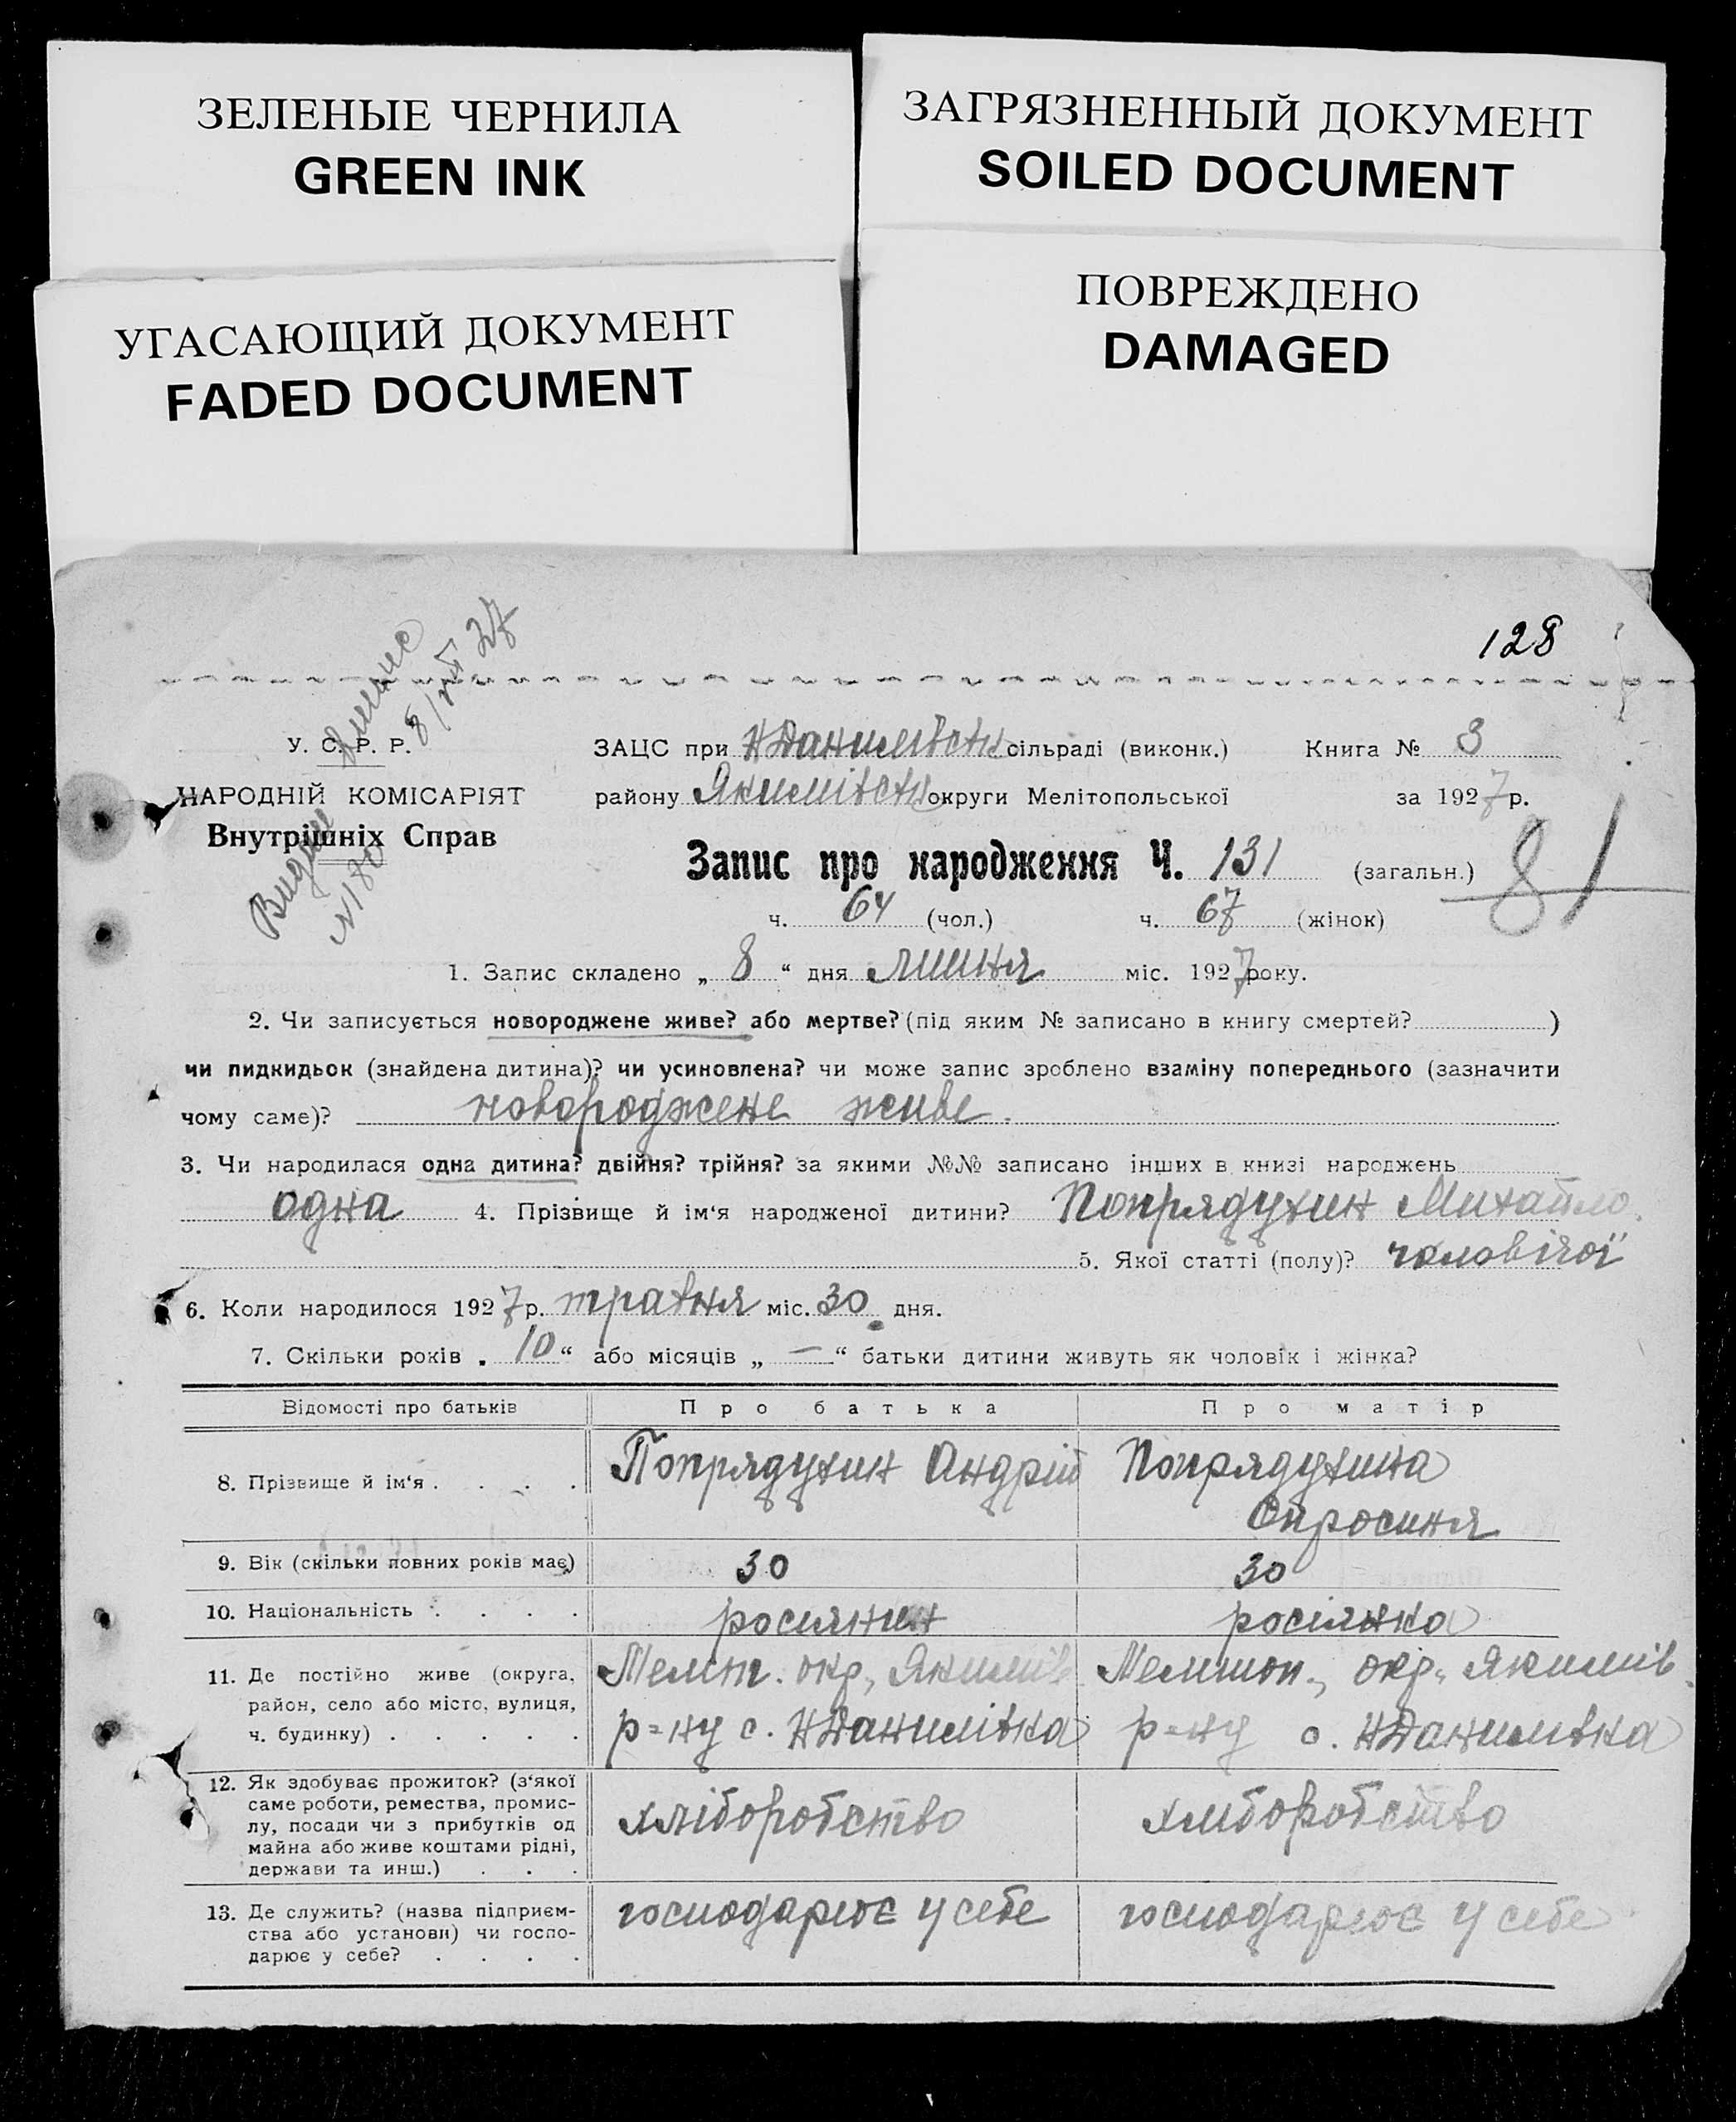 ЗЕЛЕНЫЕ ЧЕРНИЛА
GREEN INK
ЗАГРЯЗНЕННЫЙ ДОКУМЕНТ
SOILED DOCUMENT
УГАСАЮЩИЙ ДОКУМЕНТ
FADED DOCUMENT
ПОВРЕЖДЕНО
DAMAGED
128
Видан випис
№ 180 8/VII 27
У. С. Р. Р.
НАРОДНІЙ КОМІСАРІЯТ
Внутрішніх Справ
ЗАЦС при НДанилівськ сільраді (виконк.) Книга № 3
району Якимівськ округи Мелітопольської за 1927 р.
Запис про народження Ч. 131 (загальн.)
81
ч. 64 (чол.) ч. 67 (жінок)
1. Запис складено „ 8 “ дня липня міс. 1927 року.
2. Чи записується новороджене живе? або мертве? (під яким № записано в книгу смертей? )
чи пидкидьок (знайдена дитина)? чи усиновлена? чи може запис зроблено взаміну попереднього (зазначити
чому саме)? новороджене живе.
3. Чи народилася одна дитина? двійня? трійня? за якими №№ записано інших в книзі народжень
одна 4. Прізвище й ім‘я народженої дитини? Попрядухин Михайло.
5. Якої статті (полу)? чоловічої
6. Коли народилося 1927 р. травня міс. 30 дня.
7. Скільки років „ 10 “ або місяців „ — “ батьки дитини живуть як чоловік і жінка?
Відомості про батьків Про батька Про матір
8. Прізвище й ім‘я . . . . Попрядухин Андрій Попрядухина
Опросиня
9. Вік (скільки повних років має) 30 30
10. Національність . . . . росиянин росіянка
11. Де постійно живе (округа,
район, село або місто, вулиця,
ч. будинку) . . . . .
Меліт. окр., Якимів
р=ну с. НДанилівка
Мелитоп., окр., Якимів.
р=ну с. НДанилівка
12. Як здобуває прожиток? (з‘якої
саме роботи, ремества, промис-
лу, посади чи з прибутків од
майна або живе коштами рідні,
держави та инш.) . . .
хліборобство
хліборобство
13. Де служить? (назва підприєм-
ства або установи) чи госпо-
дарює у себе? . . . .
господарює у себе
господарює у себе